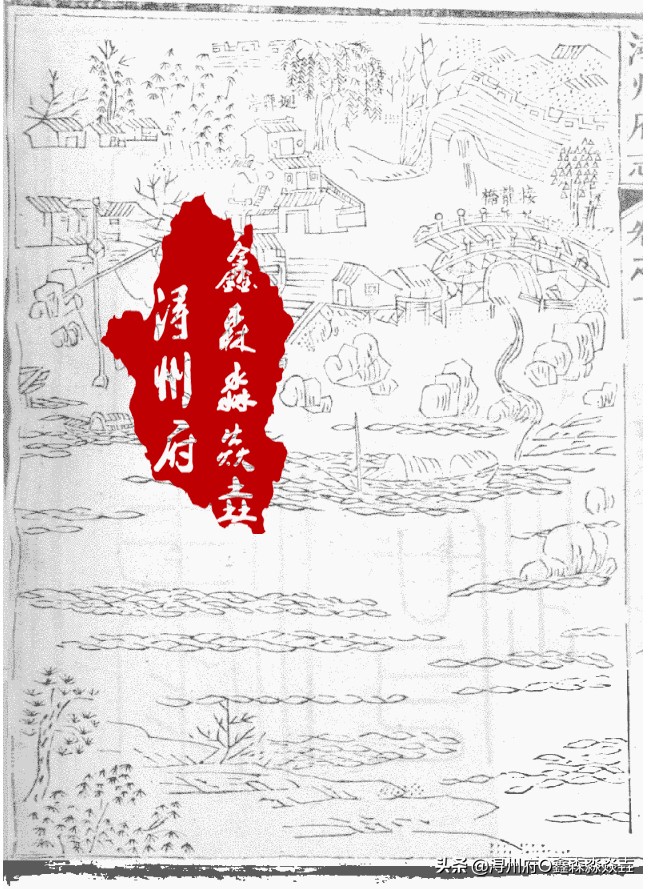 潯州府志
接龍橋
鑫森淼焱垚
浔州府
头条 @浔州府O鑫森淼焱垚